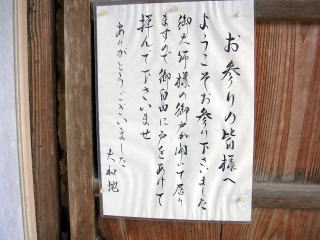 お参りの皆様へ
ようこそお参り下さいました
御大師様の御戸が開いて居り
ますので御自由に戸をあけて
拝んで下さいませ
ありがとうございました
大和地